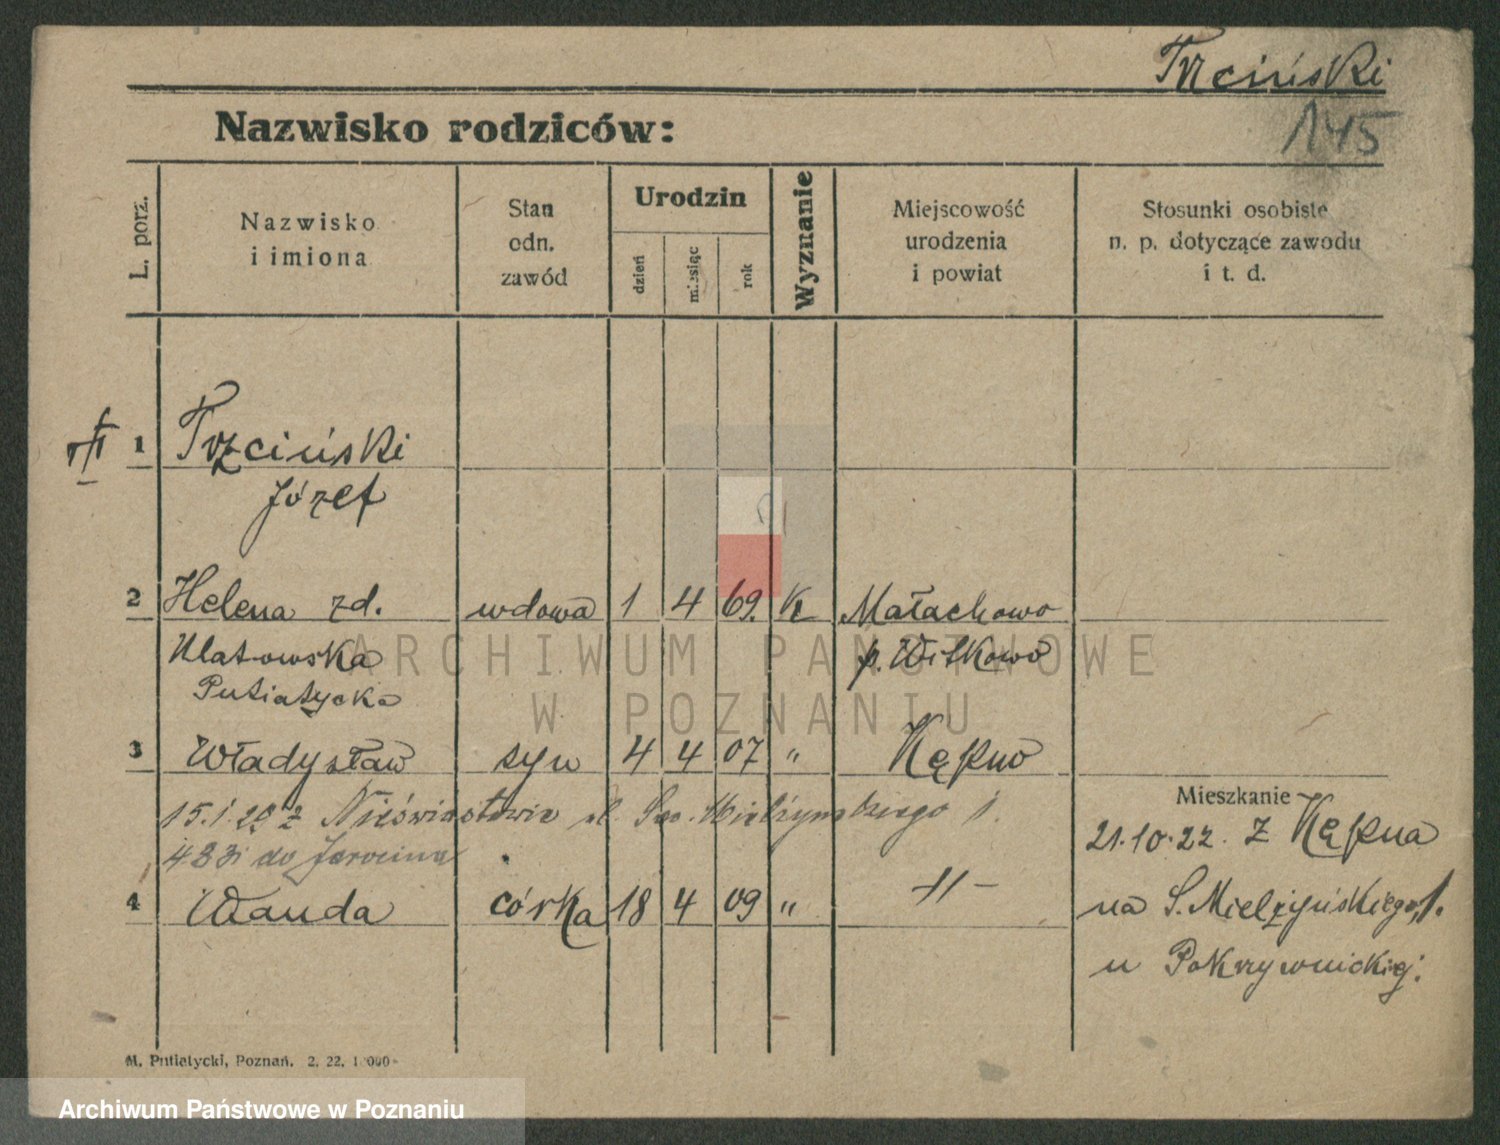 Trzciński
145
Nazwisko rodziców:
L. porz.
Nazwisko
i imiona
Stan
odn.
zawód
Urodzin
dzień
miesiąc
rok
Wyznanie
Miejscowość
urodzenia
i powiat
Stosunki osobiste
n. p. dotyczące zawodu
i t. d.
1 Trzciński
Józef
2 Helena zd. wdowa 1 4 69. K Małachowo
p. Witkowo
Putiatycka
3 Władysław syn 4 4 07 " Kępno
15.1.29 z
do Jarocina
4 Wanda córka 18 4 09 " -"-
Mieszkanie
21.10.22. z Kępna
na S. Mielżyńskiego 1.
u Pokrzywnickiej.
M. Putiatycki, Poznań. 2. 22. 1 000
ARCHIWUM PAŃSTWOWE
W POZNANIU
Archiwum Państwowe w Poznaniu